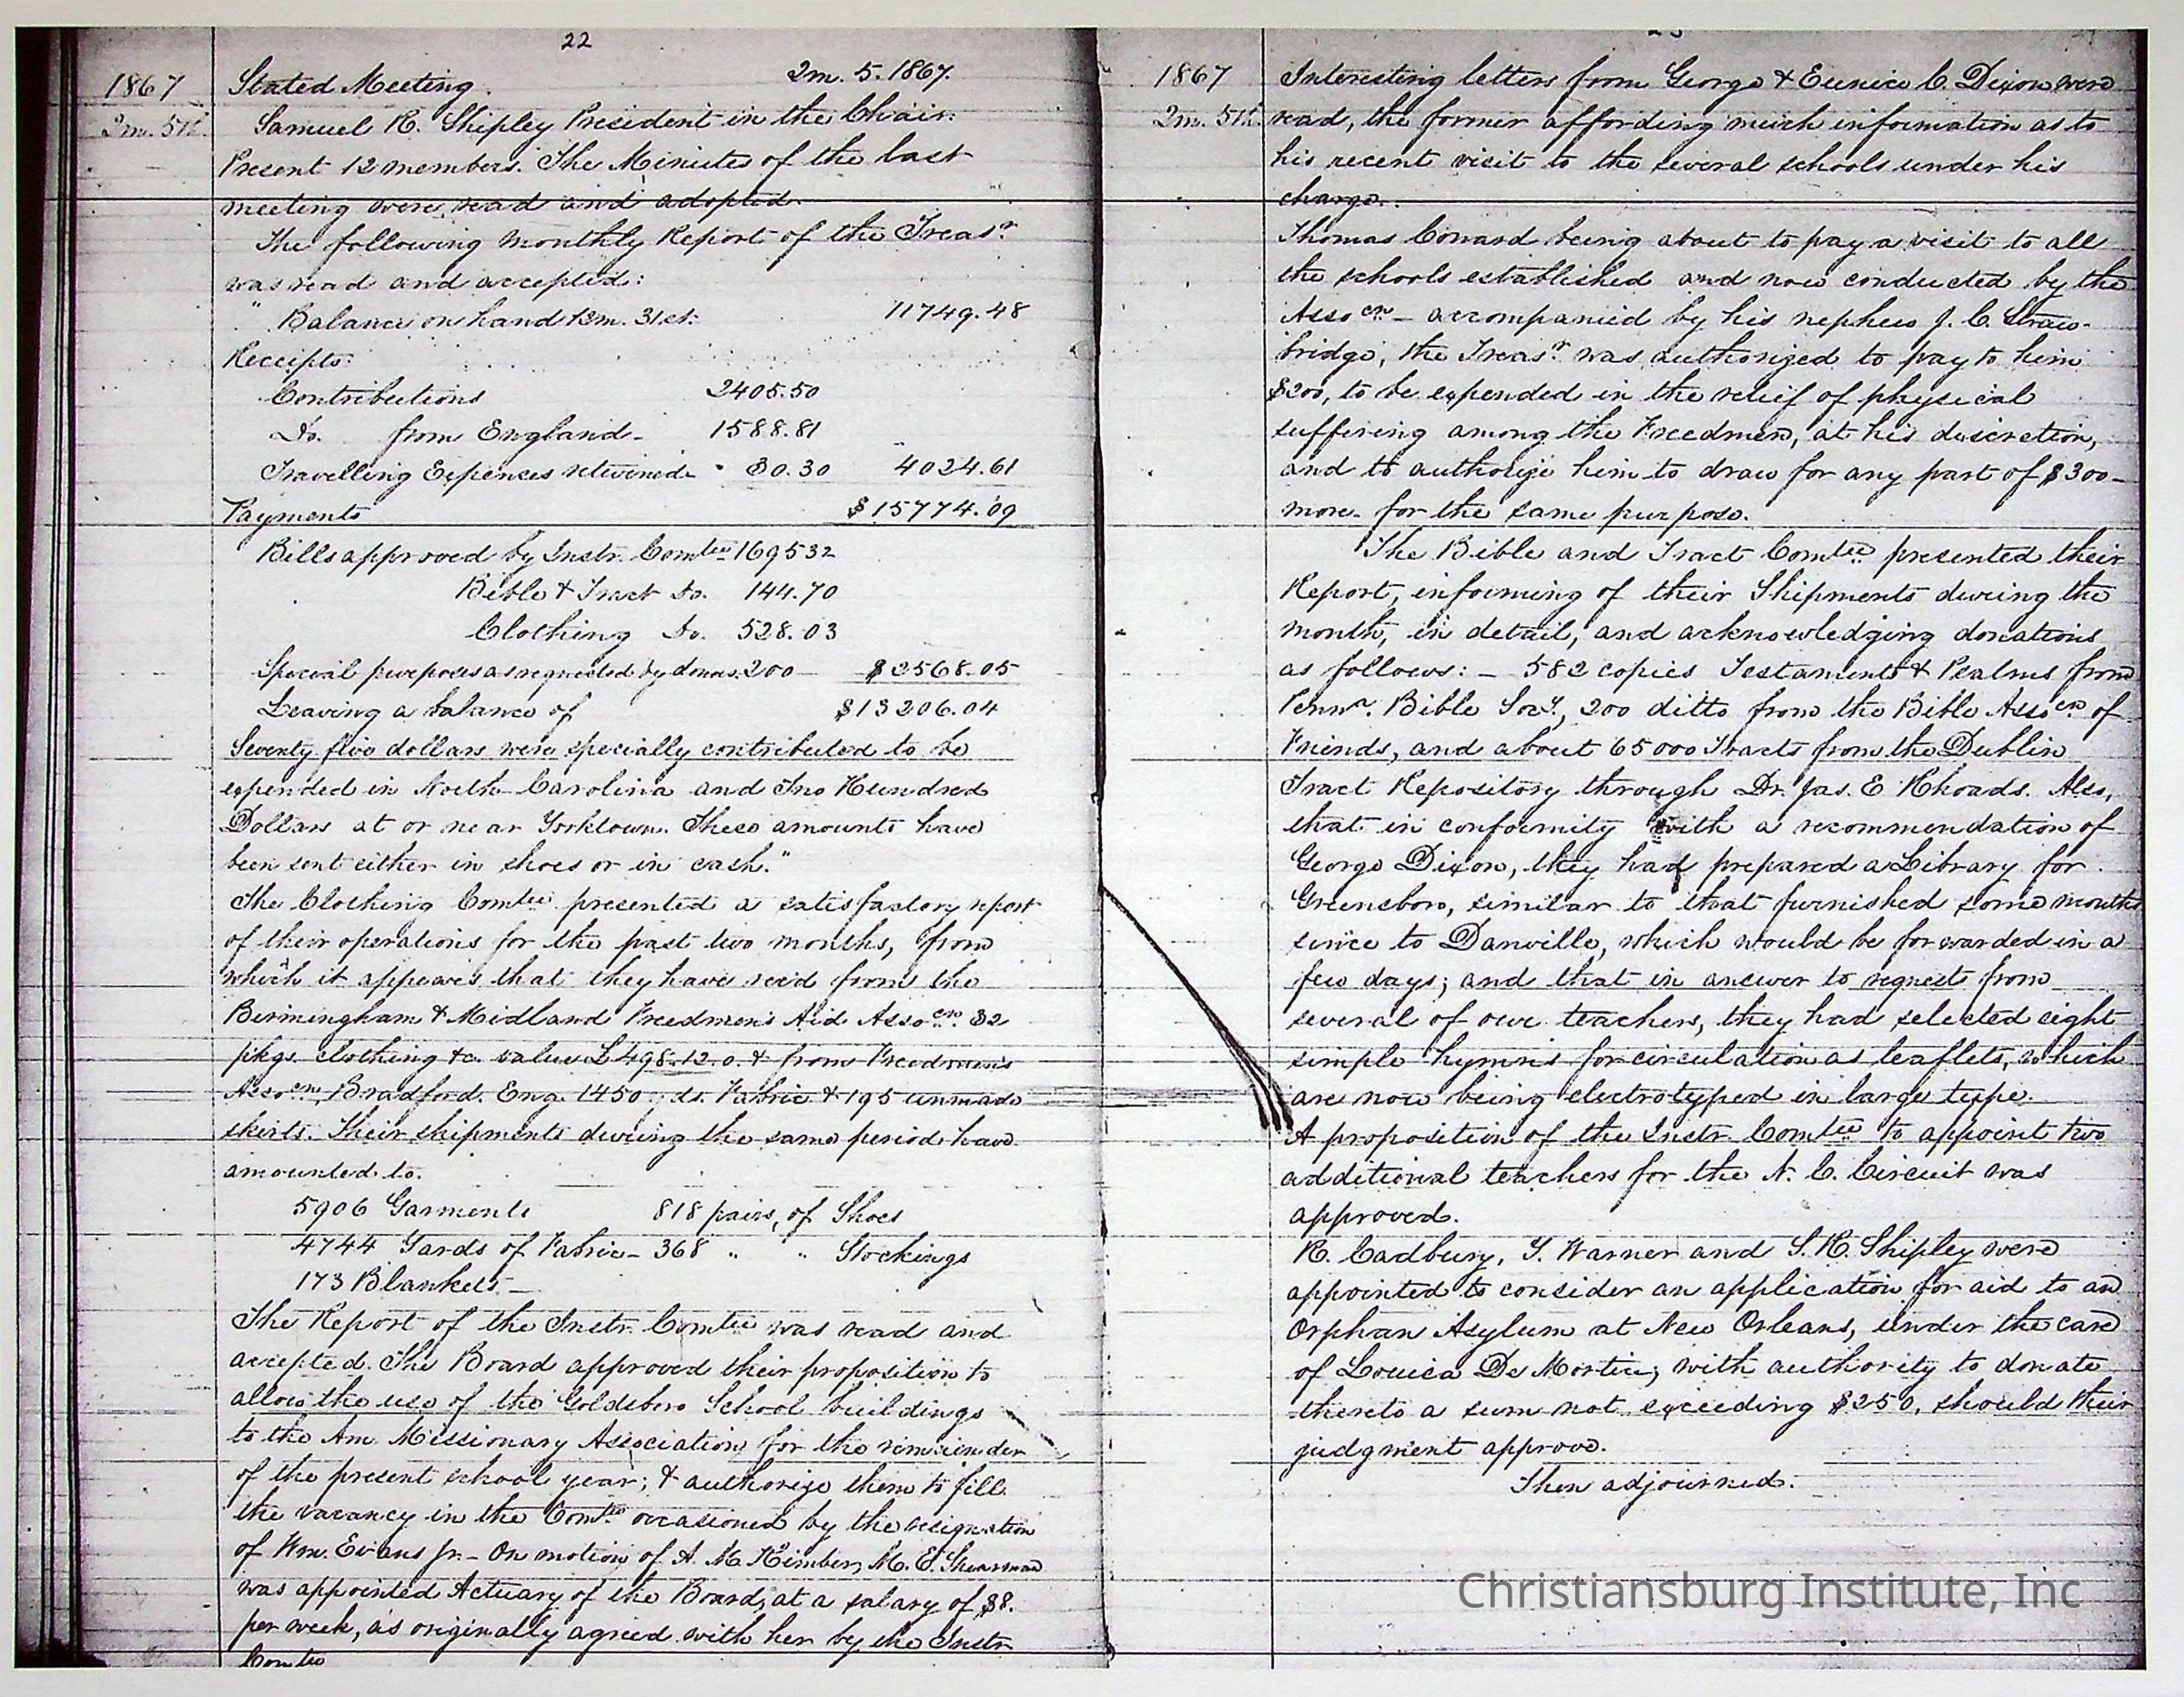 22
1867 Stated Meeting. 2m. 5. 1867.
2m. 5th. Samuel R. Shipley President in the Chair.
Present 12 members. The Minutes of the last
meeting were read and adopted.
The following Monthly Report of the Treasr
was read and accepted:
" Balance on hand 12m. 31st: 11749.48
Receipts:
Contributions 2405.50
Do. from England - 1588.81
Travelling Expenses returned 30.30 4024.61
Payments $15774.09
Bills approved by Instr. Comtee 169532
Bible & Tract Do. 144.70
Clothing Do. 528.03
Special purposes as requested by donors. 200 — $2568.05
Leaving a balance of $13206.04
Seventy five dollars were specially contributed to be
expended in North Carolina and Two Hundred
Dollars at or near Yorktown. These amounts have
been sent either in shoes or in cash."
The Clothing Comtee presented a satisfactory report
of their operations for the past two months, from
which it appears that they have rec'd from the
Birmingham & Midland Freedmen's Aid Assocn. 32
pkgs. clothing &c. value £498.12.0. & from Freedmen's
Assocn, Bradford. Eng. 1450 yds. Fabric & 195 unmade
skirts. Their shipments during the same period have
amounted to.
5906 Garments 818 pairs, of Shoes
4744 Yards of Fabric - 368 " " Stockings
173 Blankets —
The Report of the Instr. Comtee was read and
accepted. The Board approved their proposition to
allow the use of the Goldsboro School buildings
to the Am. Missionary Association for the remainder
of the present school year; & authorize them to fill
the vacancy in the Comtee occasioned by the resignation
of Wm. Evans Jr. - On motion of A. M. Kimber, M. E. Shearman
was appointed Actuary of the Board, at a salary of $8.
per week, as originally agreed with her by the Instr
Comtee
1867 Interesting letters from George & Eunice C. Dixon were
2m. 5th. read, the former affording much information as to
his recent visit to the several schools under his
charge.
Thomas Conard being about to pay a visit to all
the schools established and now conducted by the
Assocn — accompanied by his nephew J. C. Straw-
bridge, the Treasr. was authorized to pay to him
$200, to be expended in the relief of physical
suffering among the Freedmen, at his discretion,
and to authorize him to draw for any part of $300 -
more - for the same purpose.
The Bible and Tract Comtee presented their
Report, informing of their Shipments during the
month, in detail, and acknowledging donations
as follows: — 582 copies Testaments & Psalms from
Penna. Bible Socy., 200 ditto from the Bible Assocn of
Friends, and about 65000 Tracts from the Dublin
Tract Repository through Dr. Jas. E Rhoads. Also,
that in conformity with a recommendation of
George Dixon, they had prepared a Library for
Greensboro, similar to that furnished some months
since to Danville, which would be forwarded in a
few days; and that in answer to requests from
several of our teachers, they had selected eight
simple hymns for circulation as leaflets, which
are now being electrotyped in large type.
A proposition of the Instr. Comtee to appoint two
additional teachers for the N. C. Circuit was
approved.
R. Cadbury, Y. Warner and S. R. Shipley were
appointed to consider an application for aid to an
Orphan Asylum at New Orleans, under the care
of Louisa De Mortie; with authority to donate
thereto a sum not exceeding $250, should their
judgment approve.
Then adjourned.
Christiansburg Institute, Inc